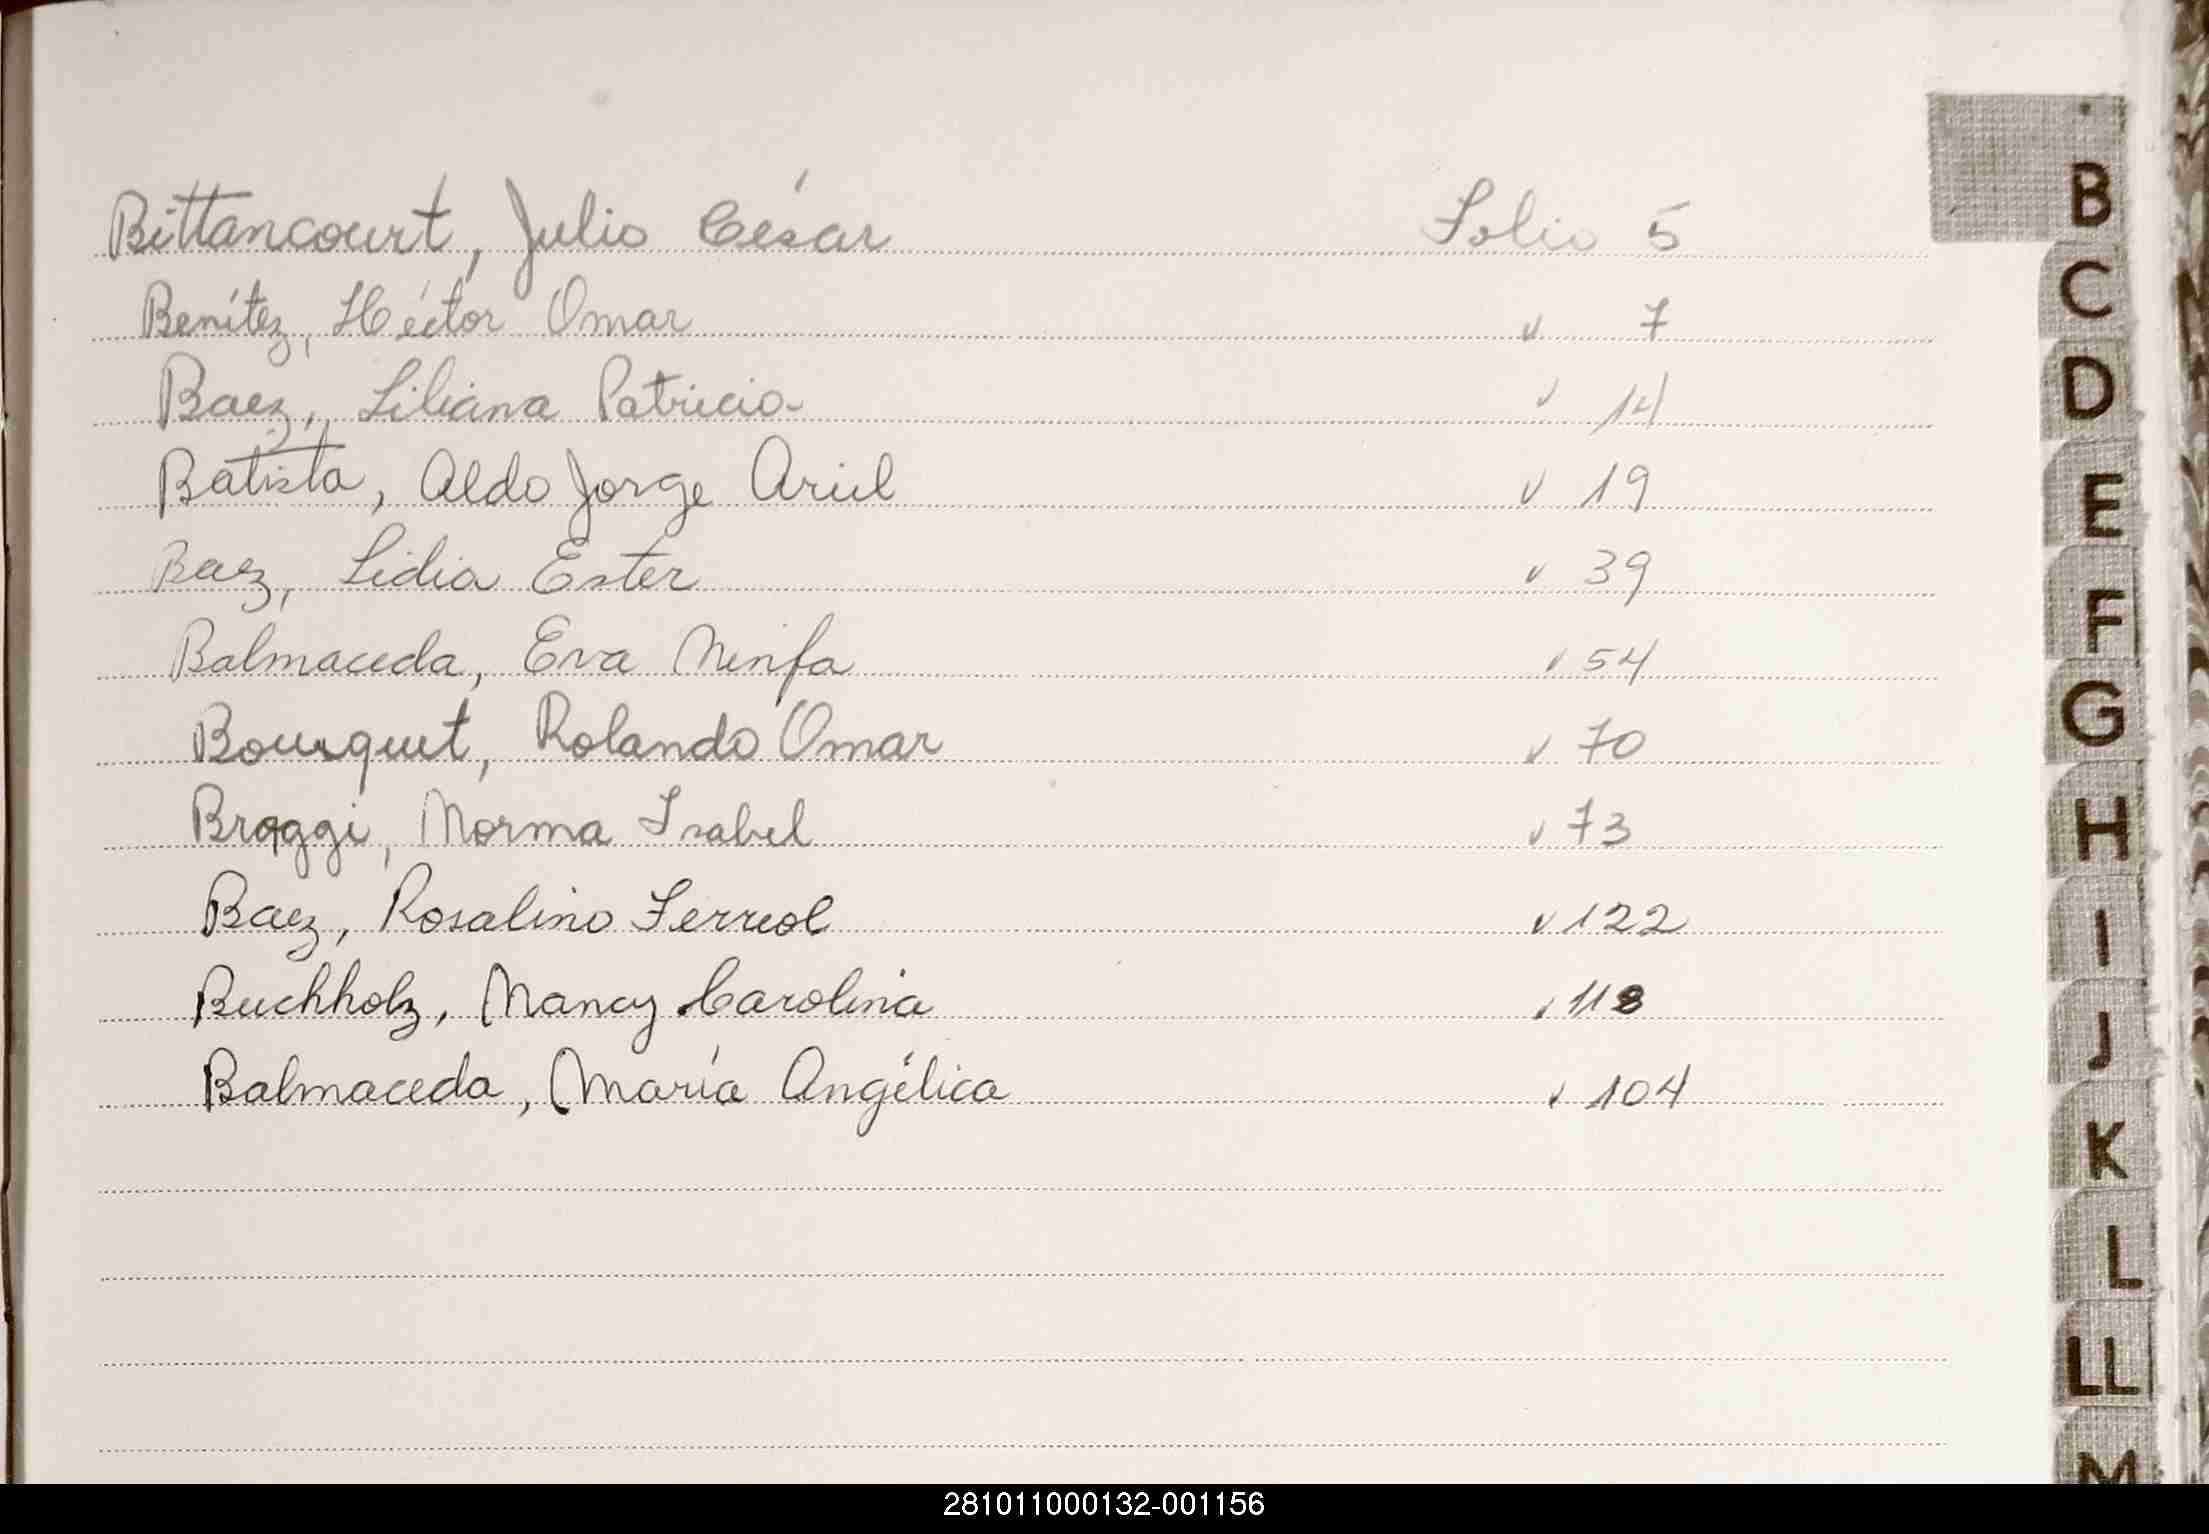 Bittancourt, Julio César Folio 5
Benítez, Héctor Omar " 7
Baez, Liliana Patricia " 14
Batista, Aldo Jorge Ariel " 19
Baez, Lidia Ester " 39
Balmaceda, Eva Ninfa " 54
Bousquet, Rolando Omar " 70
Broggi, Norma Isabel " 73
Baez, Rosalino Ferreol " 122
Buchholz, Nancy Carolina " 118
Balmaceda, María Angélica " 104
B
C
D
E
F
G
H
I
J
K
L
LL
M
281011000132-001156